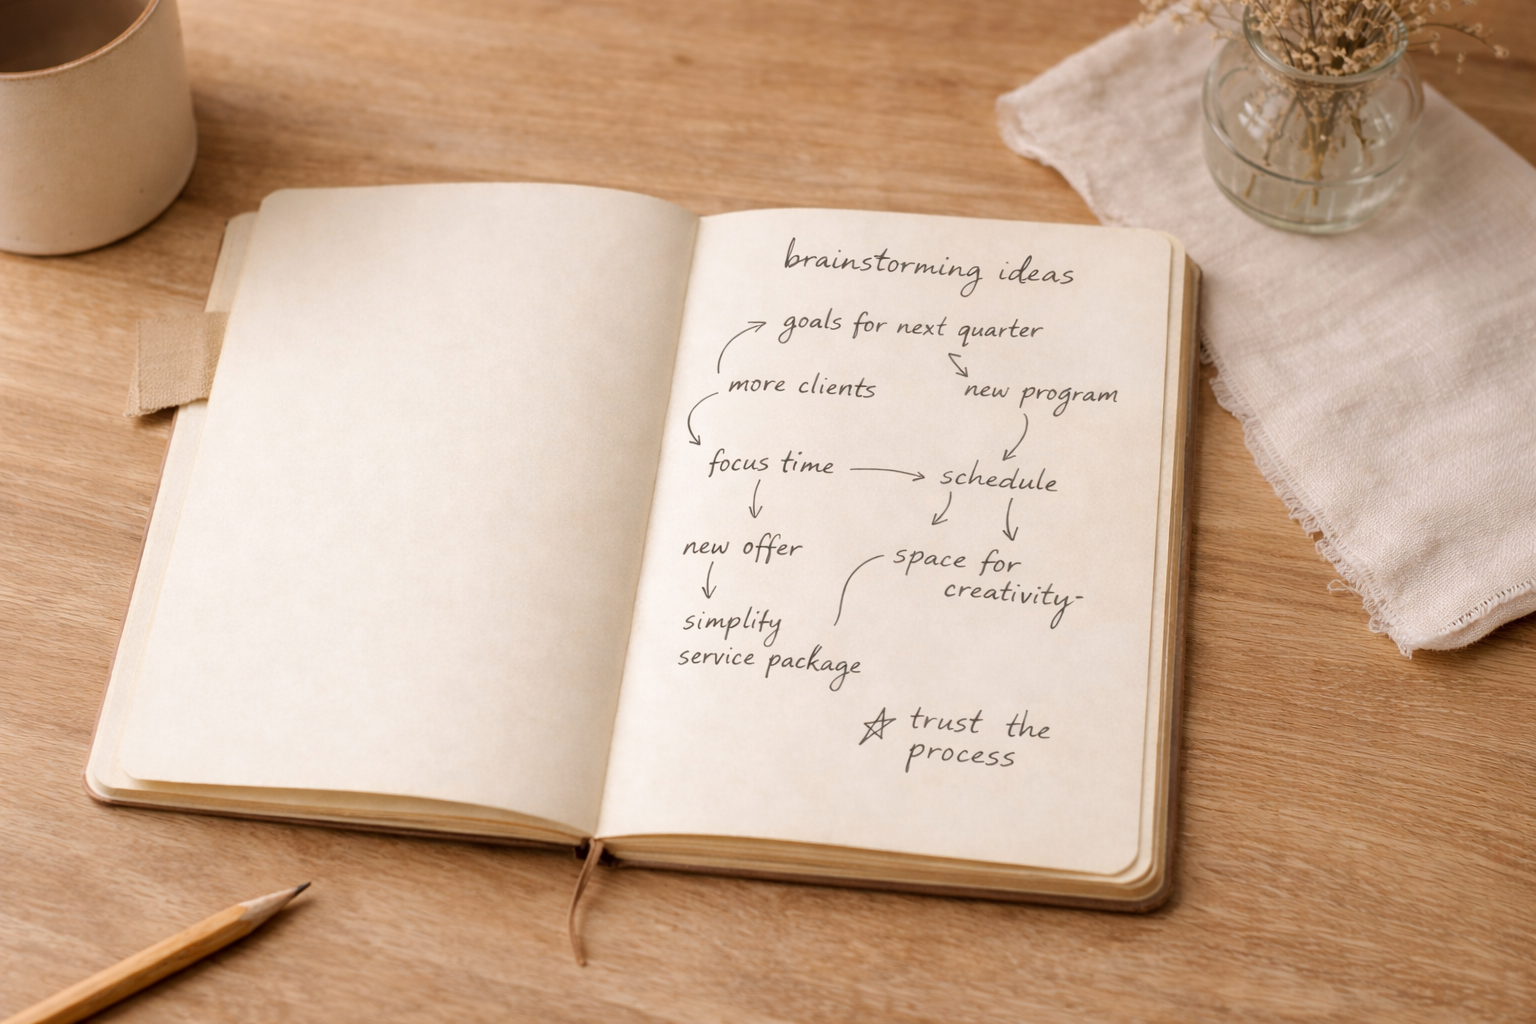 brainstorming ideas
goals for next quarter
more clients
new program
focus time
schedule
new offer
space for
creativity-
simplify
service package
trust the
process